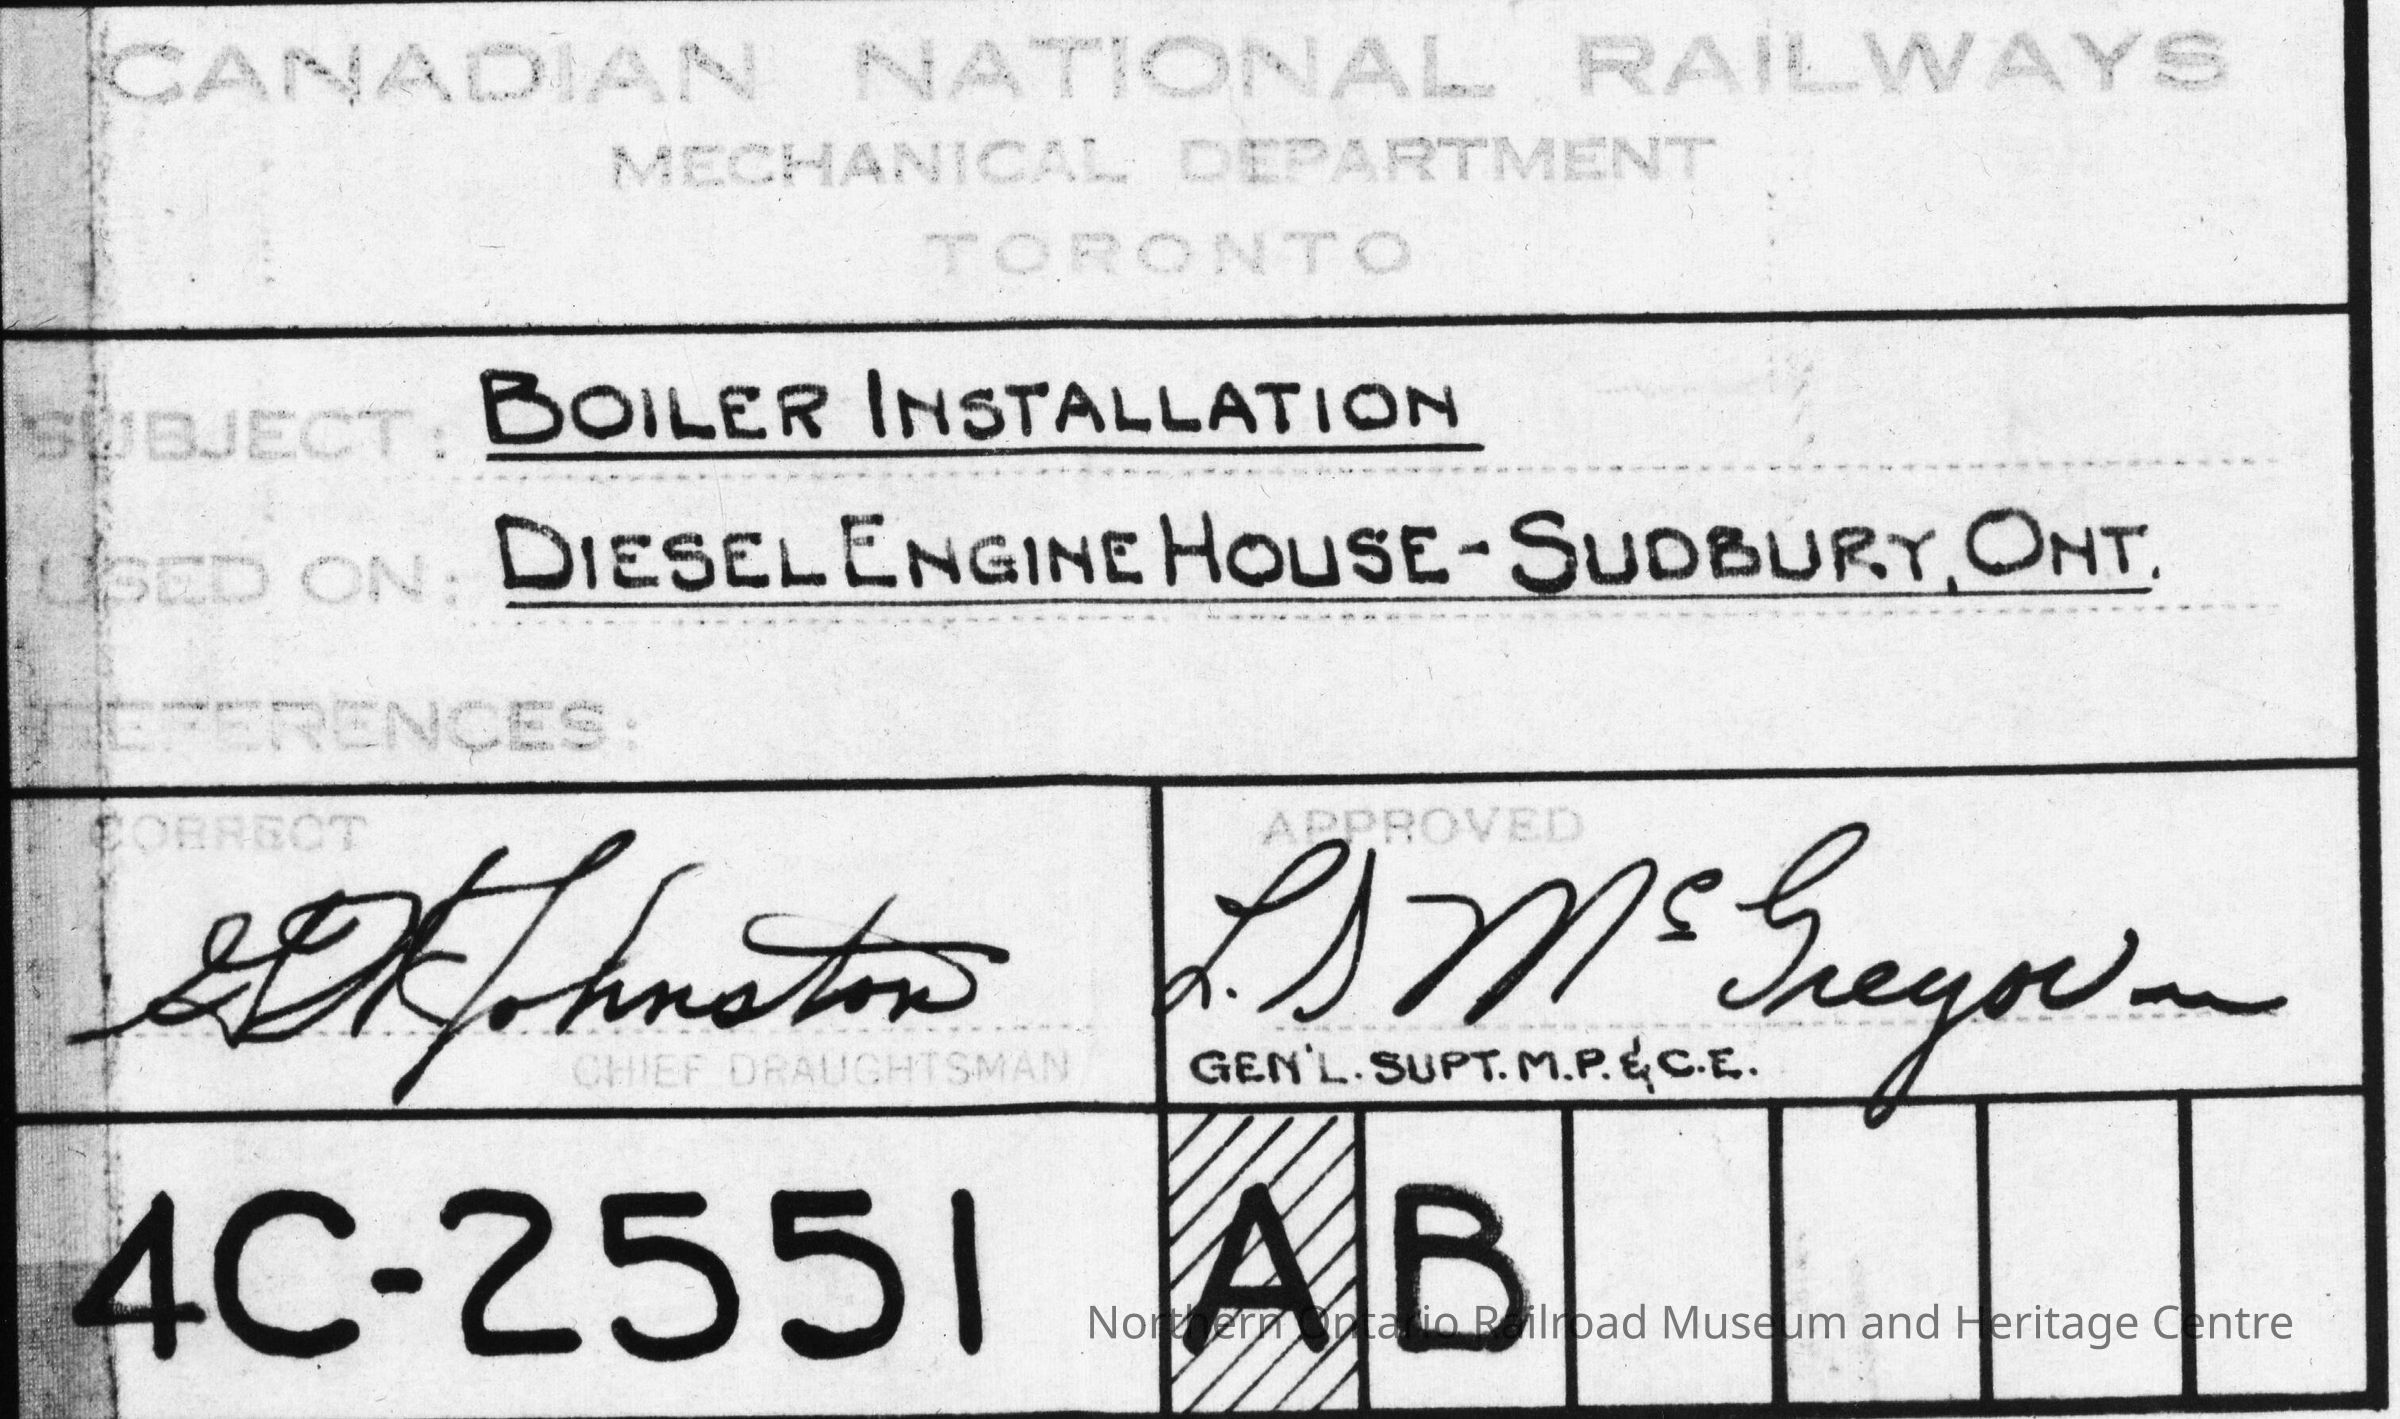 CANADIAN NATIONAL RAILWAYS
MECHANICAL DEPARTMENT
TORONTO
SUBJECT: BOILER INSTALLATION
USED ON: DIESEL ENGINE HOUSE - SUDBURY, ONT.
REFERENCES:
CORRECT
Johnston
CHIEF DRAUGHTSMAN
APPROVED
L. S McGregor
GEN'L. SUPT. M.P. & C.E.
4C-2551 A B
Northern Ontario Railroad Museum and Heritage Centre